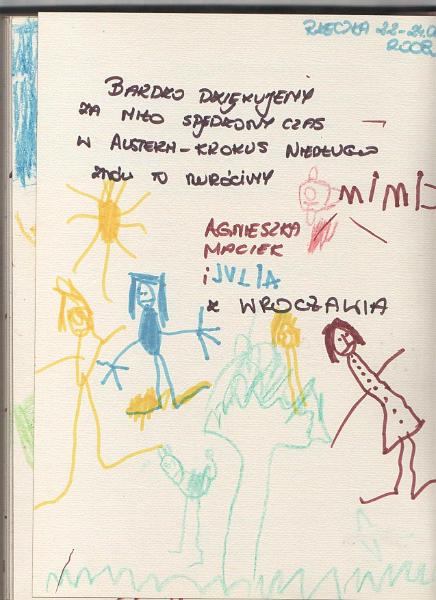 RZECZKA 22-24.0
2008
BARDZO DZIĘKUJEMY
ZA MIŁO SPĘDZONY CZAS
W AUSTERII-KROKUS NIEDŁUGO
ZNÓW TU WRÓCIMY
AGNIESZKA
MACIEK
i JULIA
z WROCŁAWIA